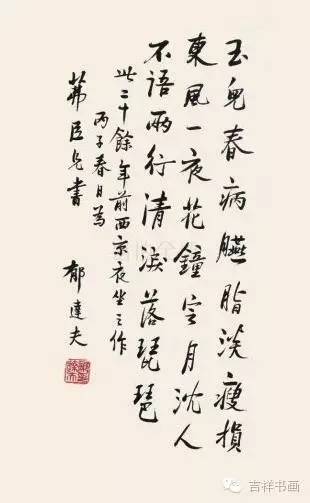 玉兒春病臙脂淡瘦損
東風一夜花鐘定月沈人
不語兩行清淚落琵琶
此二十餘年前西京夜坐之作
丙子春日為
茀臣兄書
郁達夫
吉祥书画